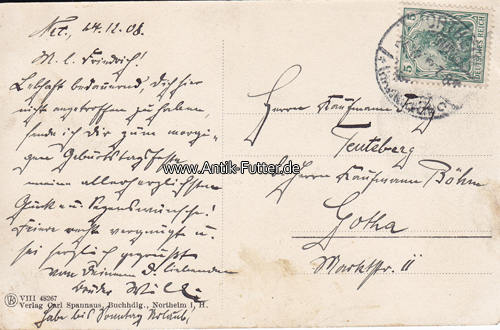 24.12.08.
M. l. Friedrich!
Lebhaft bedauernd, dich hier
nicht angetroffen zu haben,
sende ich dir zum morgi-
gen Geburtstagsfeste
meine allerherzlichsten
Glück- u. Segenswünsche!
Feiere recht vergnügt u.
sei herzlich gegrüsst
von Deinem dich liebenden
Bruder Willi.
Habe bis Sonntag Urlaub!
Herrn Kaufmann Fritz
Herrn Kaufmann Böhm
Gotha
Marktstr. 11
DEUTSCHES REICH
5
www.Antik-Futter.de
VIII 48267
Verlag Carl Spannaus, Buchhdlg., Northeim i. H.